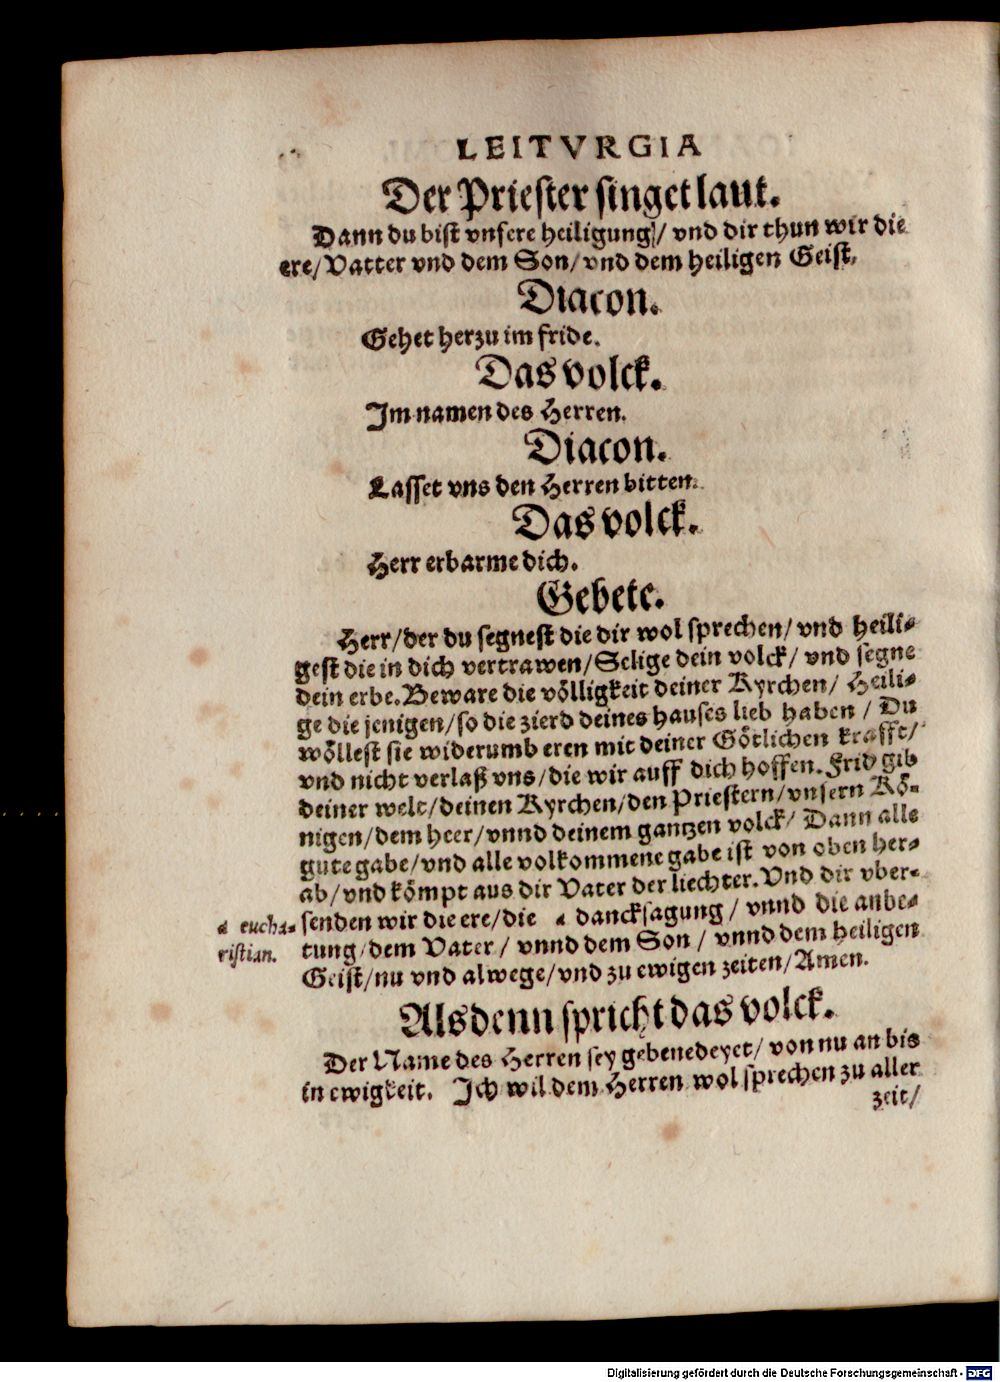 LEITVRGIA
Der Priester singet laut.
Dann du bist vnsere heiligung/ vnd dir thun wir die
ere/ Vatter vnd dem Son/ vnd dem heiligen Geist.
Diacon.
Gehet herzu im fride.
Das volck.
Im namen des Herren.
Diacon.
Lasset vns den Herren bitten.
Das volck.
Herr erbarme dich.
Gebete.
Herr/ der du segnest die dir wol sprechen/ vnd heili-
gest die in dich vertrawen/ Selige dein volck/ vnd segne
dein erbe. Beware die völligkeit deiner Kyrchen/ Heili-
ge die jenigen/ so die zierd deines hauses lieb haben / Du
wöllest sie widerumb eren mit deiner Götlichen krafft/
vnd nicht verlaß vns/ die wir auff dich hoffen. Frid gib
deiner welt/ deinen Kyrchen/ den Priestern/ vnsern Kö-
nigen/ dem heer/ vnnd deinem gantzen volck/ Dann alle
gute gabe/ vnd alle volkommene gabe ist von oben her-
ab/ vnd kömpt aus dir Vater der liechter. Vnd dir vber-
senden wir die ere/ die a dancksagung / vnnd die anbe-
tung/ dem Vater / vnnd dem Son / vnnd dem heiligen
Geist/ nu vnd alwege/ vnd zu ewigen zeiten/ Amen.
a eucha-
ristian.
Als denn spricht das volck.
Der Name des Herren sey gebenedeyet/ von nu an bis
in ewigkeit. Ich wil dem Herren wol sprechen zu aller
zeit/
Digitalisierung gefördert durch die Deutsche Forschungsgemeinschaft - DFG